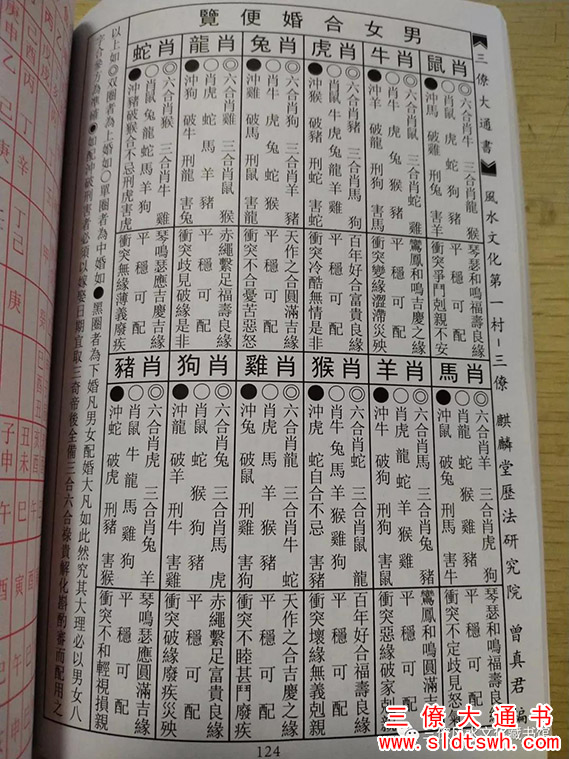 男女合婚便覽
【三僚大通書】風水文化第一村-三僚 麒麟堂歷法研究院 曾真君編
肖鼠
◎六合肖牛 三合肖龍 猴 琴瑟和鳴福壽良緣
平穩可配
●沖馬 破雞 刑兔 害羊 衝突爭鬥剋親不安
肖牛
◎六合肖鼠 三合肖蛇 雞 鸞鳳和鳴吉慶之緣
平穩可配
●沖羊 破龍 刑狗 害馬 衝突變緣澀滯災殃
肖虎
◎六合肖豬 三合肖馬 狗 百年好合富貴良緣
平穩可配
●沖猴 破豬 刑蛇 害蛇 衝突冷酷無情是非
肖兔
三合肖羊 豬 天作之合圓滿吉緣
○肖牛 虎 兔 蛇 猴 平穩可配
●沖雞 破馬 刑鼠 害龍 衝突不合憂苦惡怒
肖龍
◎六合肖雞 三合肖鼠 猴 赤繩繫足福壽良緣
○肖虎 蛇 馬 羊 豬 平穩可配
●沖狗 破牛 刑龍 害兔 衝突歧見破緣是非
肖蛇
◎六合肖猴 三合肖牛 雞 琴鳴瑟應吉慶吉緣
○肖鼠 兔 龍 蛇 馬 羊 狗 平穩可配
●沖豬破猴合不忌刑虎害虎 衝突無緣薄義廢疾
肖馬
◎六合肖羊 三合肖虎 狗 琴瑟和鳴福壽良緣
○肖龍 蛇 猴 雞 豬 平穩可配
衝突不定歧見怒氣
肖羊
◎六合肖馬 三合肖兔 豬 鸞鳳和鳴圓滿吉緣
平穩可配
●沖牛 破狗 刑狗 害鼠 衝突惡緣破家剋
肖猴
◎六合肖蛇 三合肖鼠 龍 百年好合福壽良緣
○肖牛 兔 馬 羊 猴 雞 狗 平穩可配
●沖虎 破蛇自合不忌 害豬 衝突壞緣無義剋親
肖雞
◎六合肖龍 三合肖牛 蛇 天作之合吉慶之緣
○肖虎 馬 羊 猴 豬 平穩可配
●沖兔 破鼠 刑雞 害狗 衝突不睦甚鬥廢疾
肖狗
◎六合肖兔 三合肖馬 虎 赤繩繫足富貴良緣
○肖鼠 蛇 猴 狗 豬 平穩可配
●沖龍 破羊 刑牛 害雞 衝突破緣廢疾災殃
肖豬
◎六合肖虎 三合肖兔 羊 琴鳴瑟應圓滿吉緣
○肖鼠 牛 龍 馬 雞 狗 平穩可配
●沖蛇 破虎 刑豬 害猴 衝突不和輕視損親
以上如◎双圈者為上婚如○單圈者為中婚如●黑圈者為下婚凡男女配婚大凡如此然究其大理必以男女八
字合參方為準確●如配沖破刑害者必須以嫁娶日期宜取三奇帝後全備三合六合祿貴解化斟酌審而配用之
124
三僚大通书
www.sldtswh.com